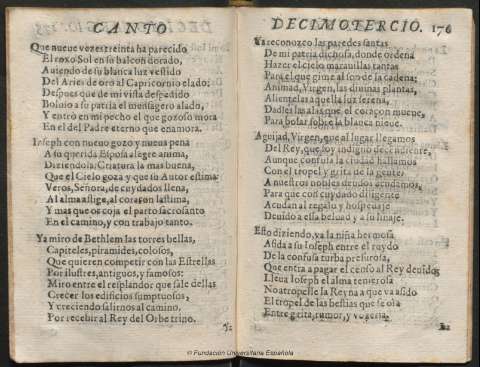 CANTO
Que nueue vezes treinta ha parecido
El roxo Sol en su balcon dorado,
Auiendo de su blanca luz vestido
Del Aries de oro al Capricornio elado:
Despues que de mi vista despedido
Boluio a su patria el mensagero alado,
Y entrò en mi pecho el que gozoso mora
En el del Padre eterno que enamora.
Ioseph con nueuo gozo y nueua pena
A su querida Esposa alegre anima,
Diziendola: Criatura la mas buena,
Que el Cielo goza y que su Autor estima:
Veros, Señora, de cuydados llena,
Al alma aflige, al coraçon lastima,
Y mas que os coja el parto sacrosanto
En el camino, y con trabajo tanto.
Ya miro de Bethlem las torres bellas,
Capiteles, piramides, colosos,
Que quieren competir con las Estrellas
Por ilustres, antiguos, y famosos:
Miro entre el resplandor que sale dellas
Crecer los edificios sumptuosos,
Y creciendo salirnos al camino,
Por recebir al Rey del Orbe trino.
Ya
DECIMOTERCIO. 176
Ya reconozco las paredes santas
De mi patria dichosa, donde ordena
Hazer el cielo marauillas tantas
Para el que gime al son de la cadena:
Animad, Virgen, las diuinas plantas,
Alientelas aquella luz serena,
Dadles las alas que el coraçon mueue,
Para bolar sobre la blanca nieue.
Aguijad, Virgen, que al lugar llegamos
Del Rey, que soy indigno decendiente,
Aunque confusa la ciudad hallamos
Con el tropel y grita de la gente:
A nuestros nobles deudos acudamos,
Para que con cuydado diligente
Acudan al regalo y hospedaje
Deuido a essa beldad y a su linaje.
Esto diziendo, va la niña hermosa
Asida a su Ioseph entre el ruydo
De la confusa turba presurosa,
Que entra a pagar el censo al Rey deuido:
Lleua Ioseph el alma temerosa
No atropelle la Reyna a que va asido
El tropel de las bestias que se oìa
Entre grita, rumor, y vozeria.
© Fundación Universitaria Española